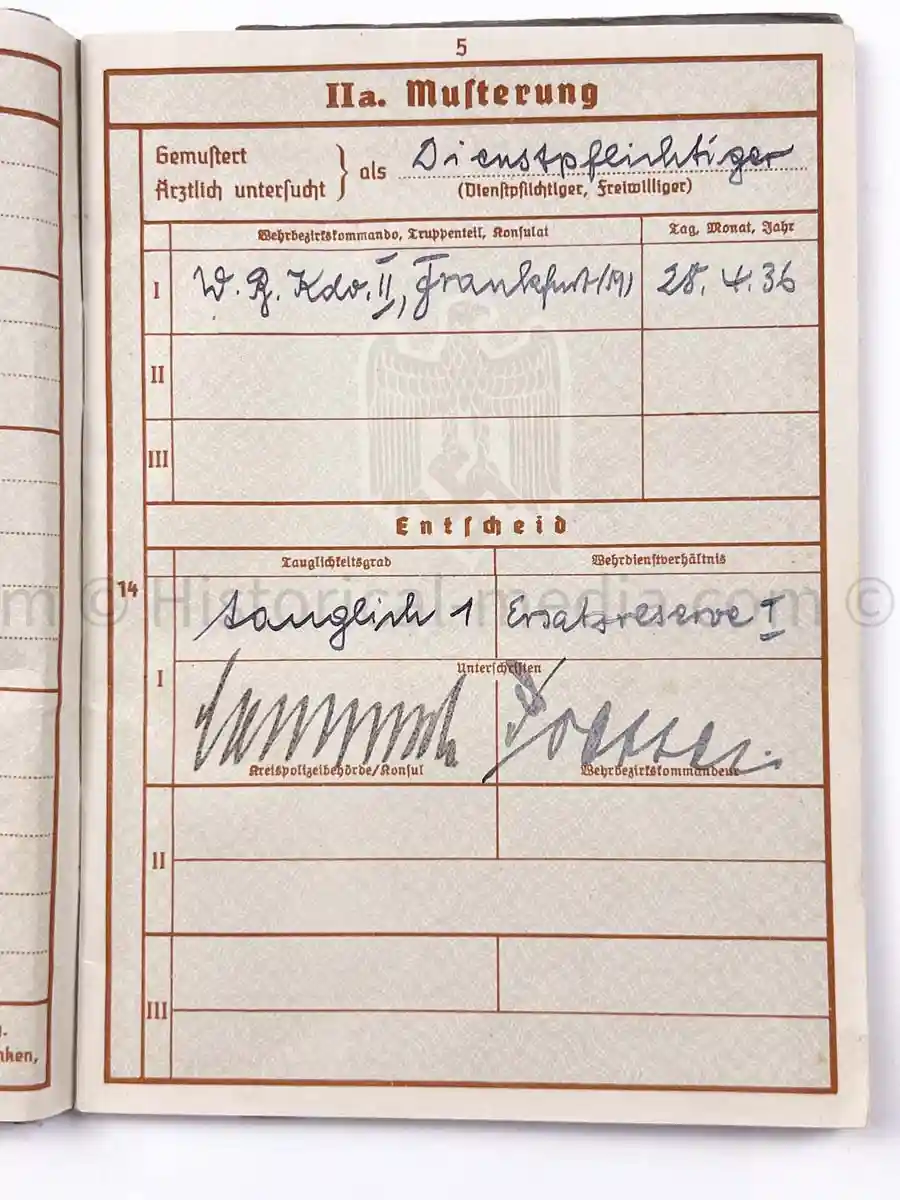 5
IIa. Musterung
Gemustert
Ärztlich untersucht } als Dienstpflichtiger
(Dienstpflichtiger, Freiwilliger)
Wehrbezirkskommando, Truppenteil, Konsulat
Tag, Monat, Jahr
I W. B. Kdo. II, Frankfurt/M) 28. 4. 36
II
III
Entscheid
Tauglichkeitsgrad
Wehrdienstverhältnis
14
tauglich 1
Ersatzreserve I
m © Historical-media.com ©
Unterschriften
I
Kreispolizeibehörde/Konsul
Wehrbezirkskommandeur
II
III
nken,